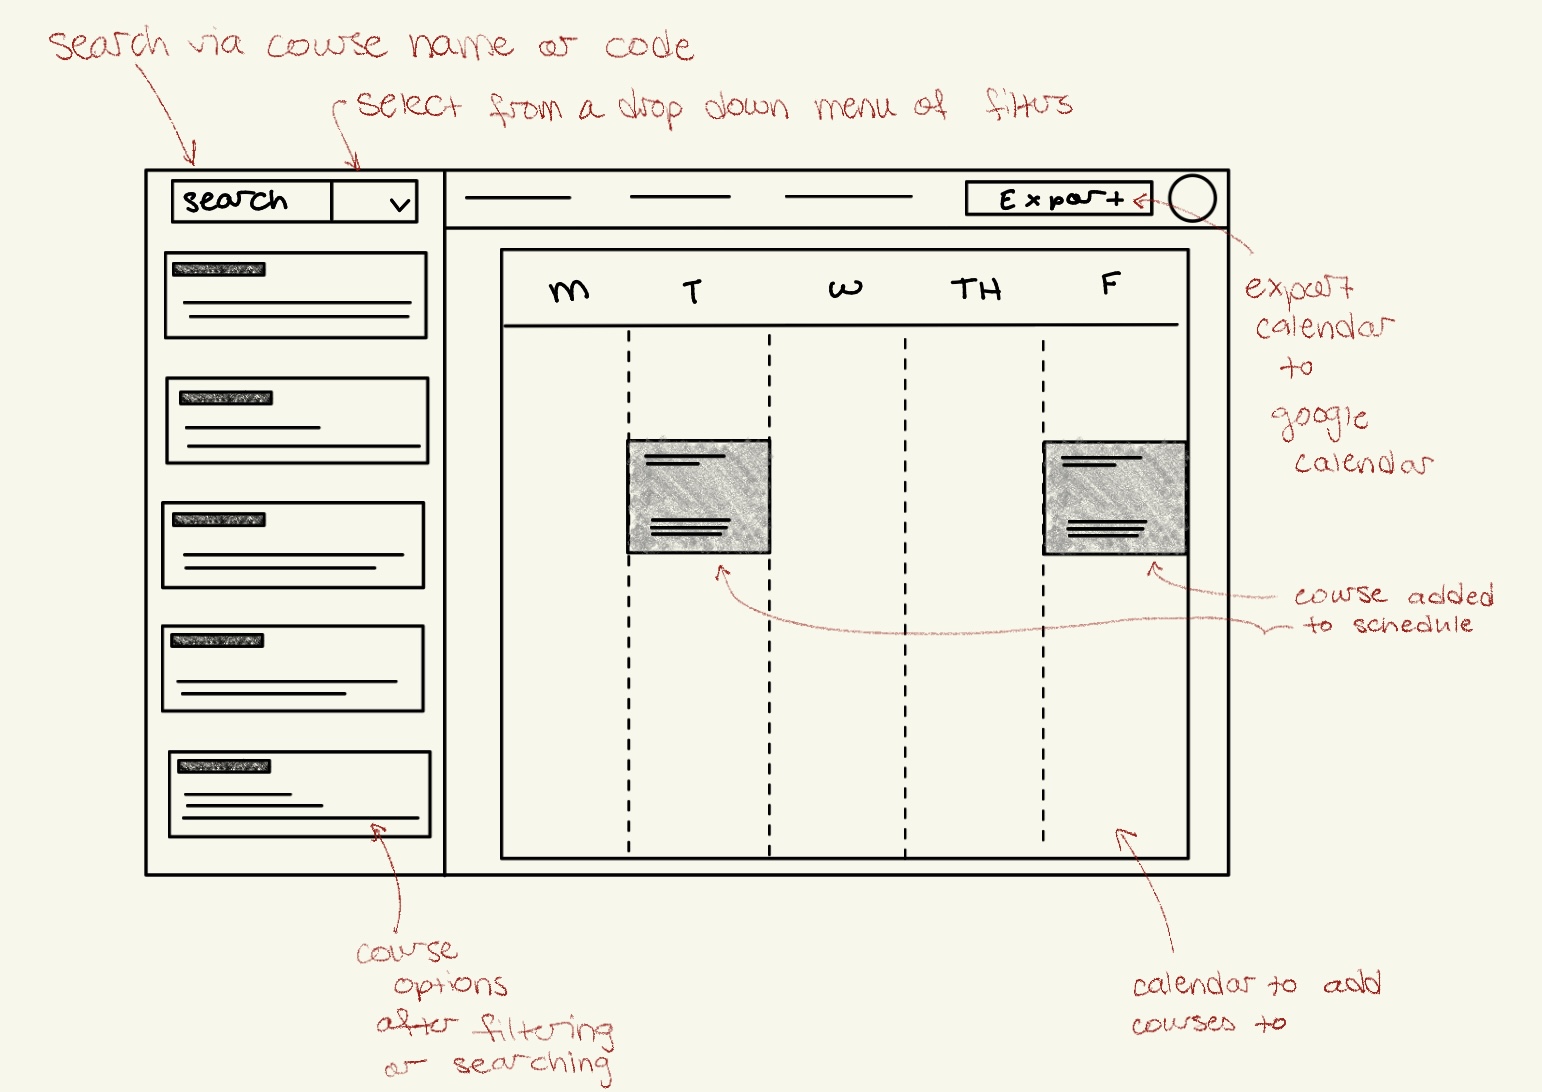 search via course name or code
select from a drop down menu of filters
search
Export
M T W TH F
export
calendar
to
google
calendar
course added
to schedule
course
options
after filtering
or searching
calendar to add
courses to